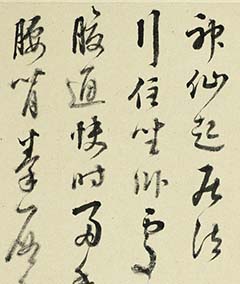 神仙起居法
行住坐卧處
腹通快時兩手
腰背拳摩